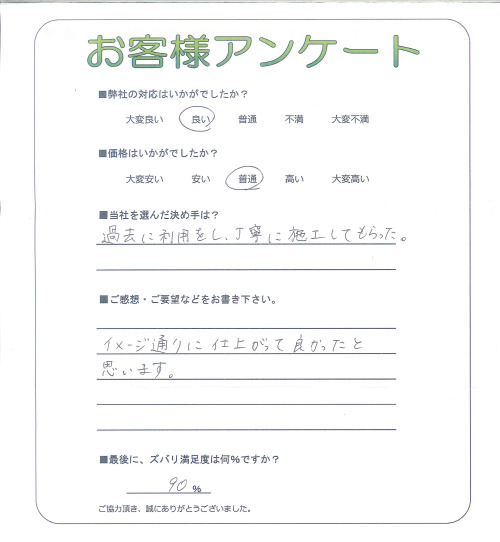 お客様アンケート
■弊社の対応はいかがでしたか？
大変良い 良い 普通 不満 大変不満
■価格はいかがでしたか？
大変安い 安い 普通 高い 大変高い
■当社を選んだ決め手は？
過去に利用をし、丁寧に施工してもらった。
■ご感想・ご要望などをお書き下さい。
イメージ通りに仕上がって良かったと
思います。
■最後に、ズバリ満足度は何％ですか？
90 ％
ご協力頂き、誠にありがとうございました。